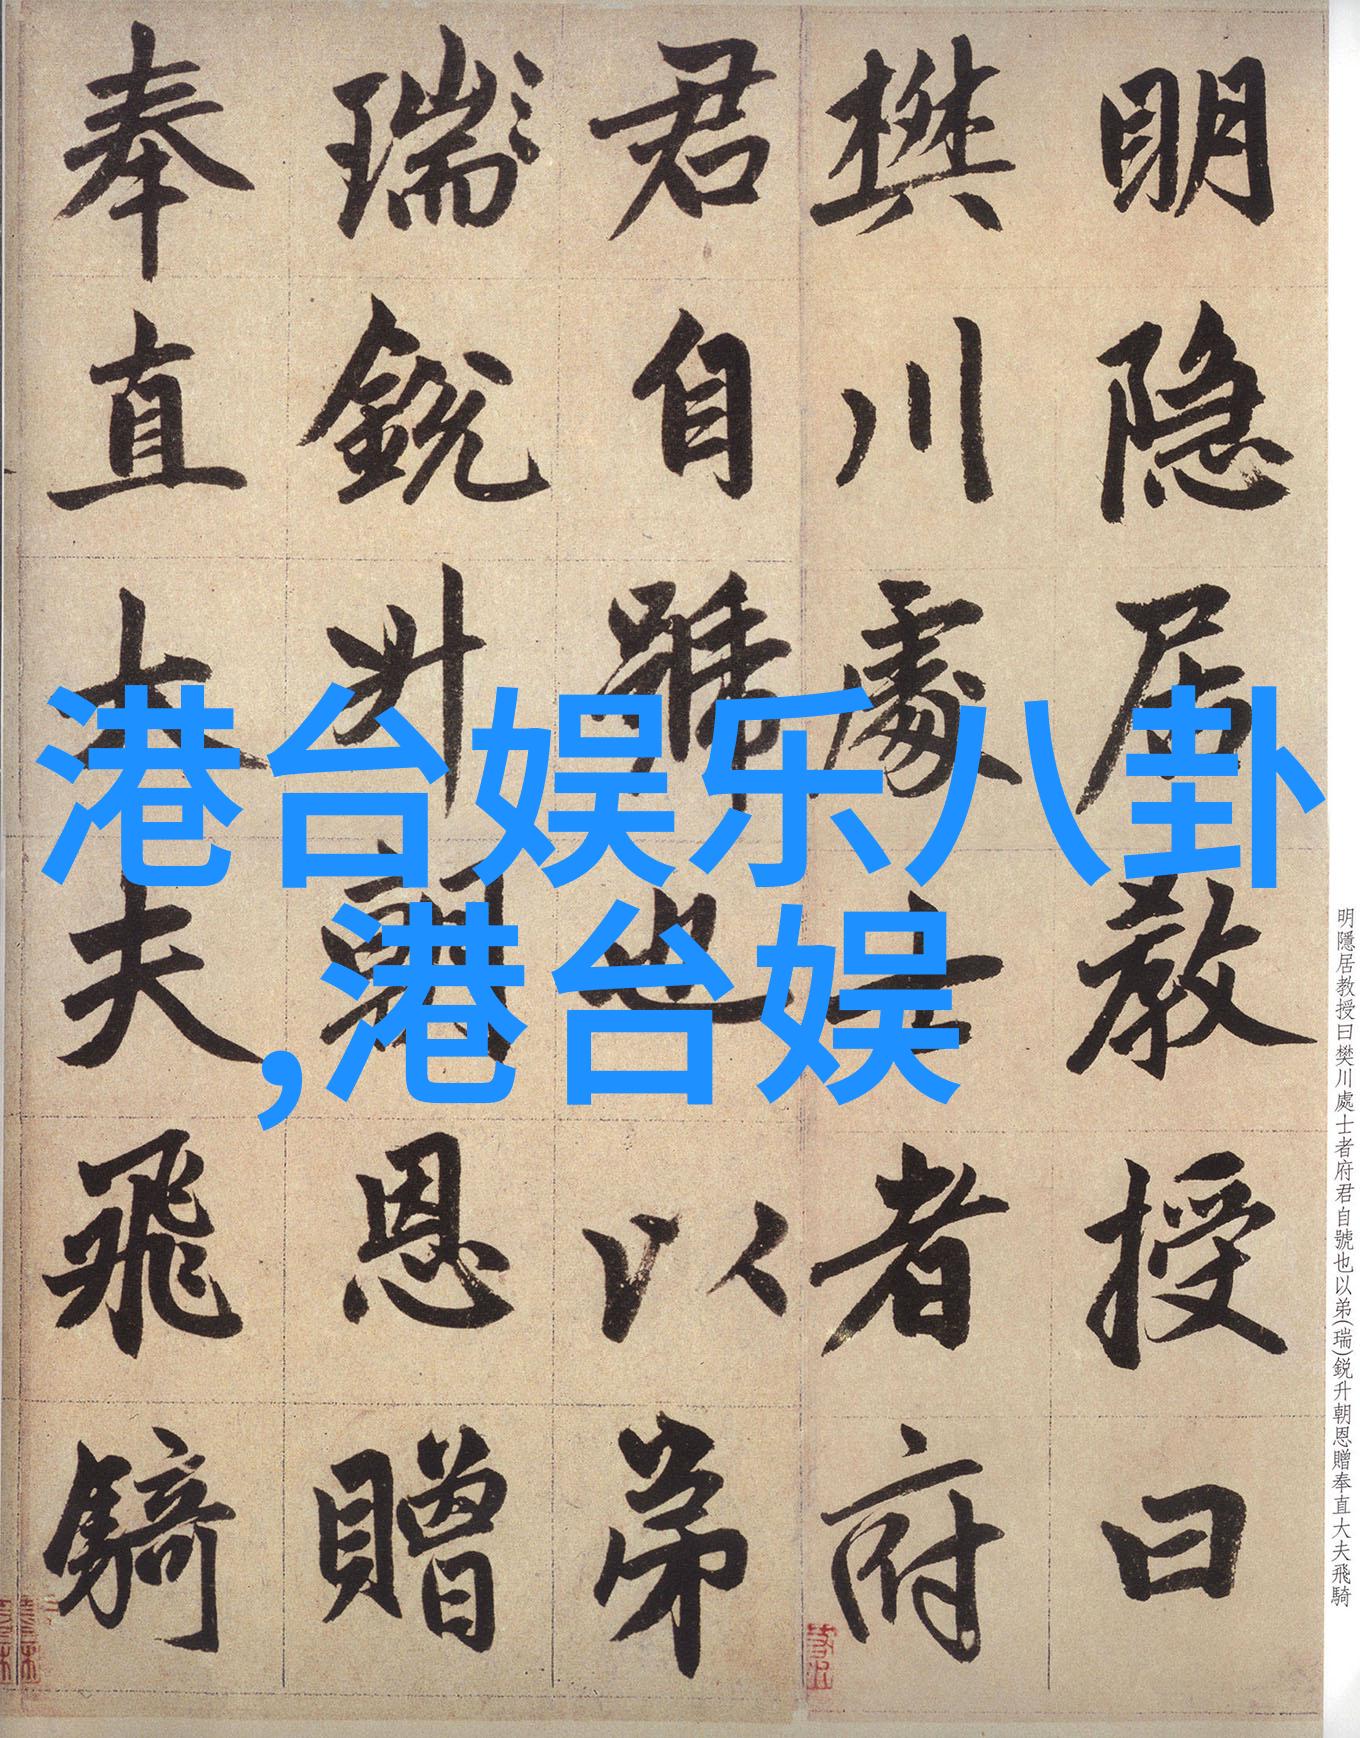 明隐居教授曰
樊川處士者府
君自號也以弟
瑞銳升朝恩贈
奉直大夫飛騎
港台娱乐八卦
,港台娱
明隱居教授曰樊川處士者府君自號也以弟(瑞)銳升朝恩贈奉直大夫飛騎